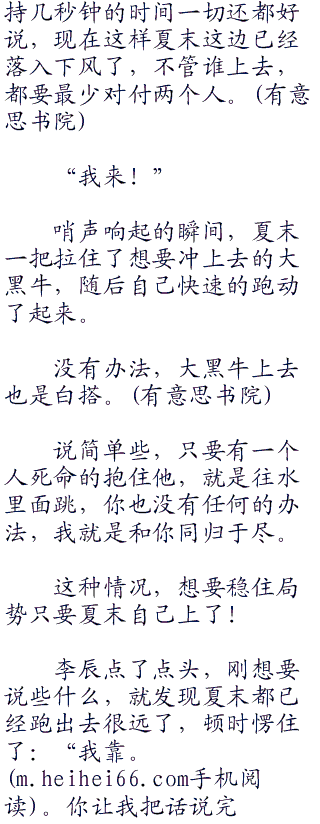 持几秒钟的时间一切还都好
说，现在这样夏末这边已经
落入下风了，不管谁上去，
都要最少对付两个人。(有意
思书院)
“我来！”
哨声响起的瞬间，夏末
一把拉住了想要冲上去的大
黑牛，随后自己快速的跑动
了起来。
没有办法，大黑牛上去
也是白搭。(有意思书院)
说简单些，只要有一个
人死命的抱住他，就是往水
里面跳，你也没有任何的办
法，我就是和你同归于尽。
这种情况，想要稳住局
势只要夏末自己上了！
李辰点了点头，刚想要
说些什么，就发现夏末都已
经跑出去很远了，顿时愣住
了：“我靠。
(m.heihei66.com手机阅
读)。你让我把话说完